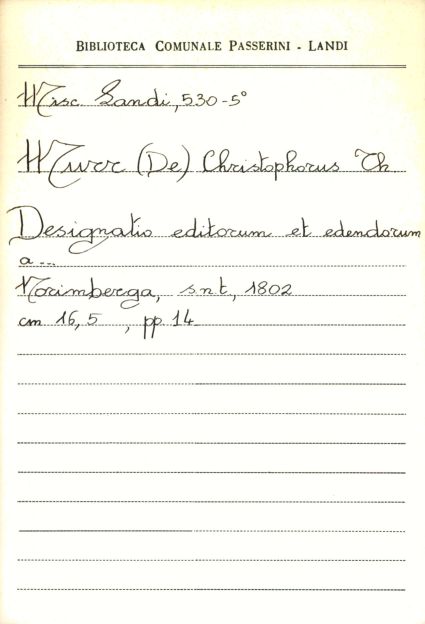 BIBLIOTECA COMUNALE PASSERINI - LANDI
Misc. Landi, 530-5°
Murr (De) Christophorus Th
Designatio editorum et edendorum
a ...
Norimberga, s.n.t., 1802
cm 16,5 , pp. 14